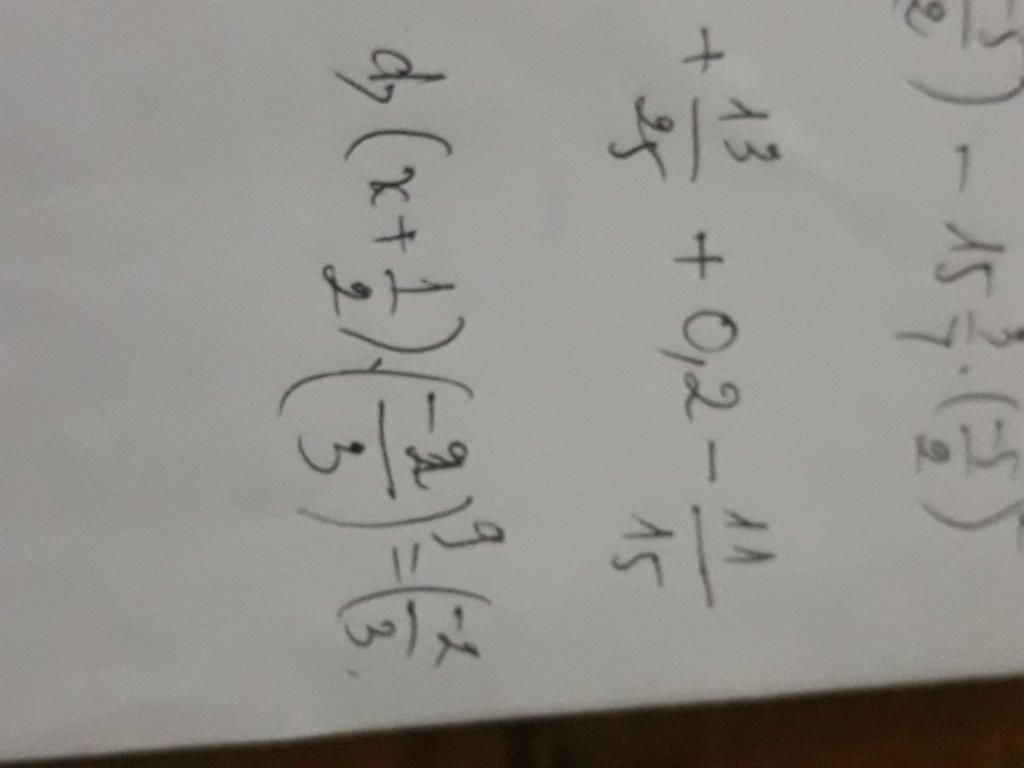 (-5/2) - 15 3/7 . (-5/2)
+ 13/25 + 0,2 - 11/15
d, (x + 1/2) . (-2/3)^9 = (-2/3